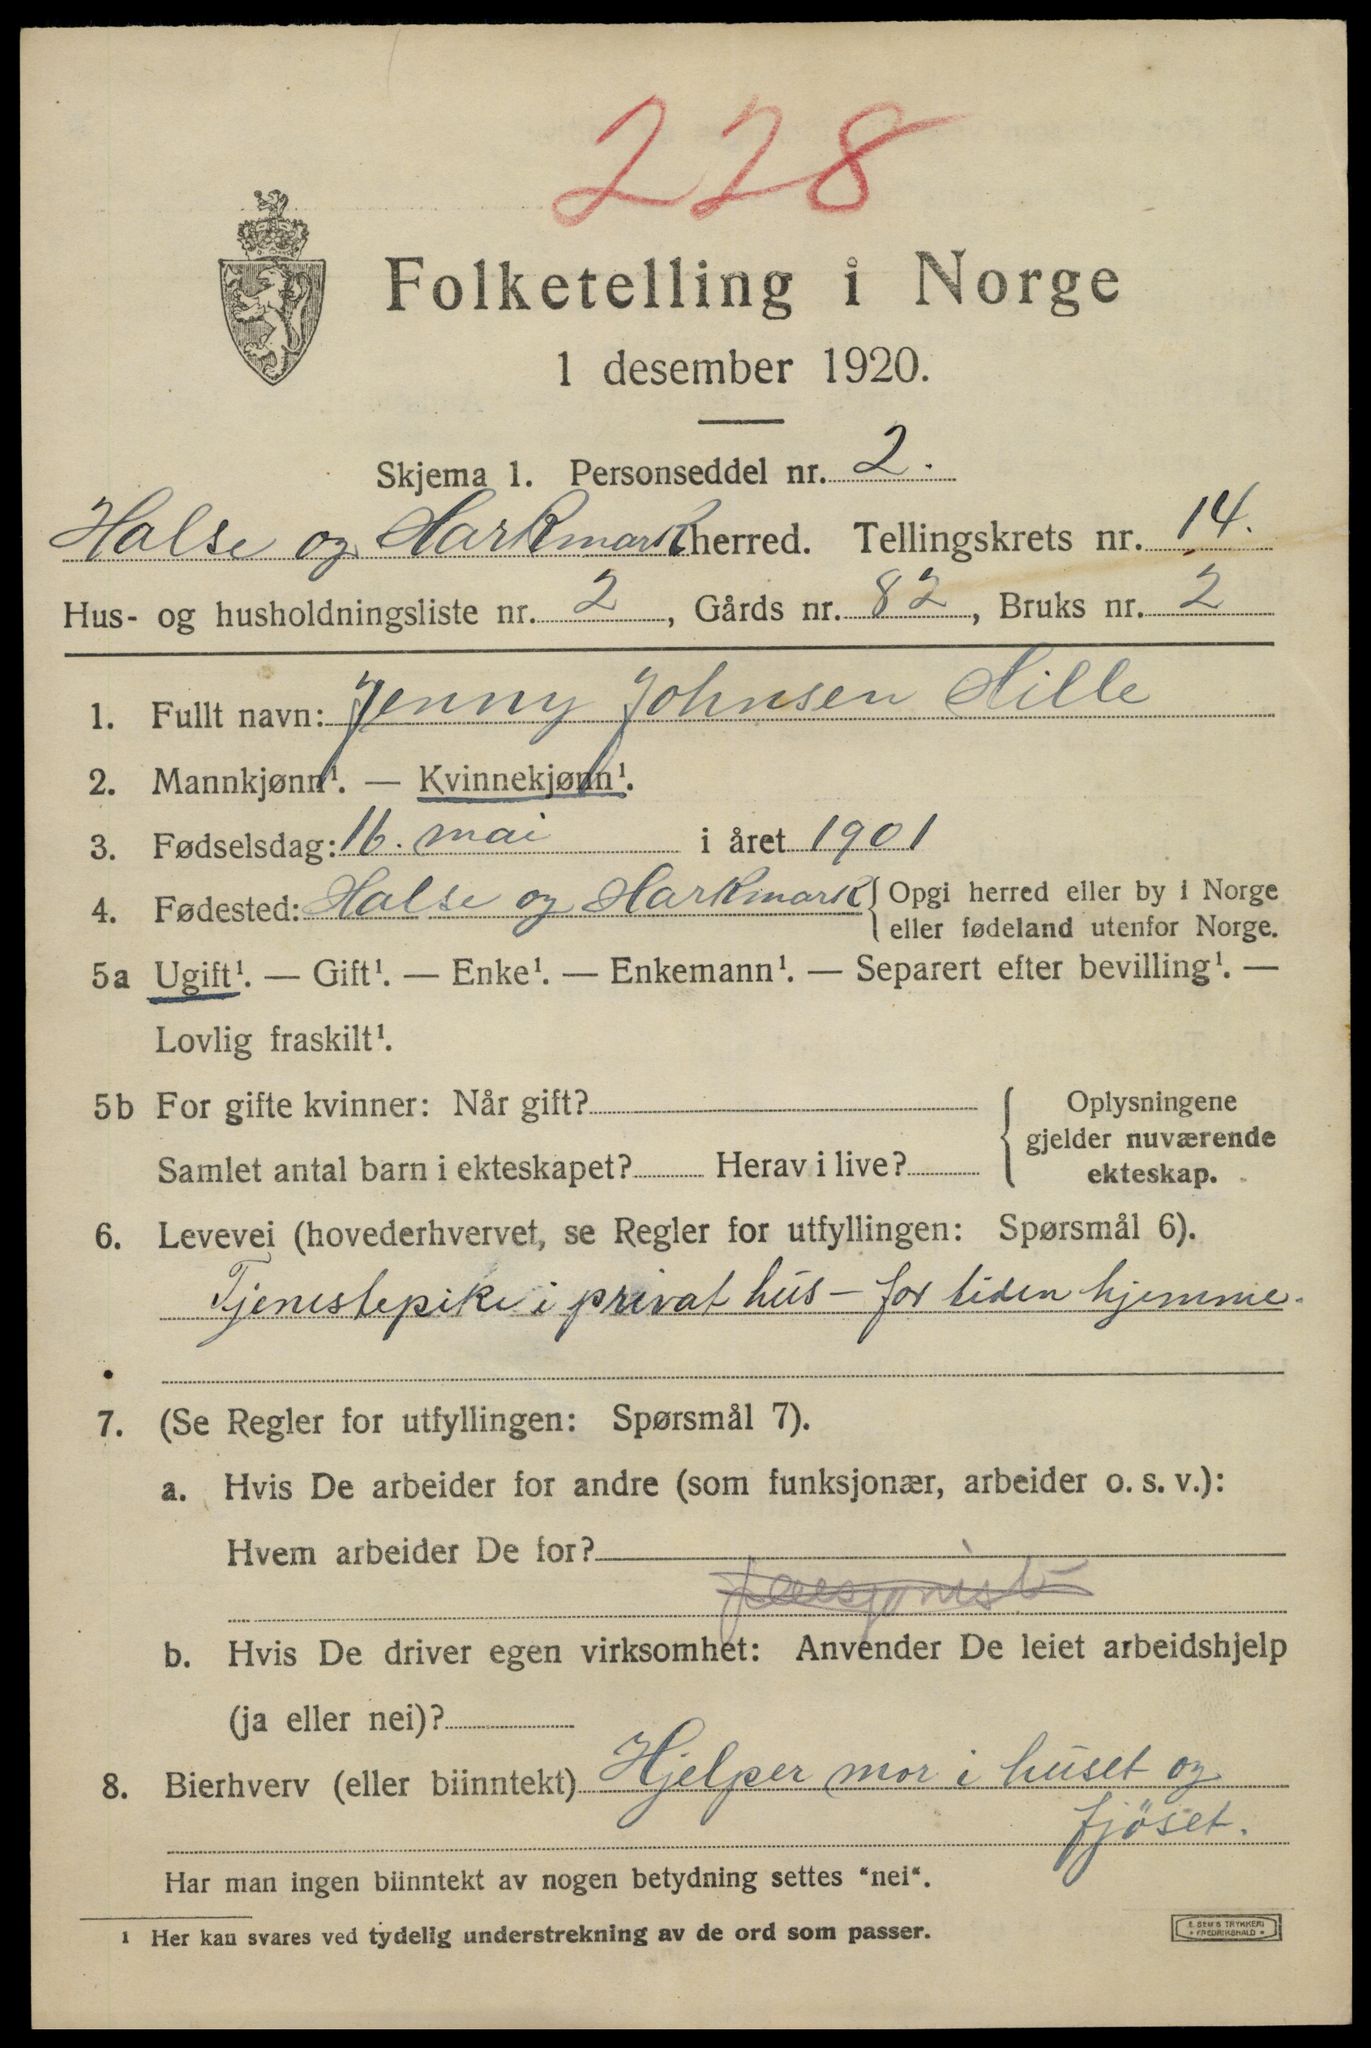 228
Folketelling i Norge
1 desember 1920.
Skjema 1. Personseddel nr. 2.
Halse og Harkmark herred. Tellingskrets nr. 14.
Hus- og husholdningsliste nr. 2, Gårds nr. 82, Bruks nr. 2
1. Fullt navn: Jenny Johnsen Hille
2. Mannkjønn¹. — Kvinnekjønn¹.
3. Fødselsdag: 16. mai i året 1901
4. Fødested: Halse og Harkmark { Opgi herred eller by i Norge
eller fødeland utenfor Norge.
5a Ugift¹. — Gift¹. — Enke¹. — Enkemann¹. — Separert efter bevilling¹. —
Lovlig fraskilt¹.
5b For gifte kvinner: Når gift?
Samlet antal barn i ekteskapet? Herav i live?
{ Oplysningene
gjelder nuværende
ekteskap.
6. Levevei (hovederhvervet, se Regler for utfyllingen: Spørsmål 6).
Tjenestepike i privat hus – for tiden hjemme.
7. (Se Regler for utfyllingen: Spørsmål 7).
a. Hvis De arbeider for andre (som funksjonær, arbeider o. s. v.):
Hvem arbeider De for?
b. Hvis De driver egen virksomhet: Anvender De leiet arbeidshjelp
(ja eller nei)?
8. Bierhverv (eller biinntekt) Hjelper mor i huset og
fjöset.
Har man ingen biinntekt av nogen betydning settes "nei".
1 Her kan svares ved tydelig understrekning av de ord som passer.
E. SEM'S TRYKKERI
FREDRIKSHALD